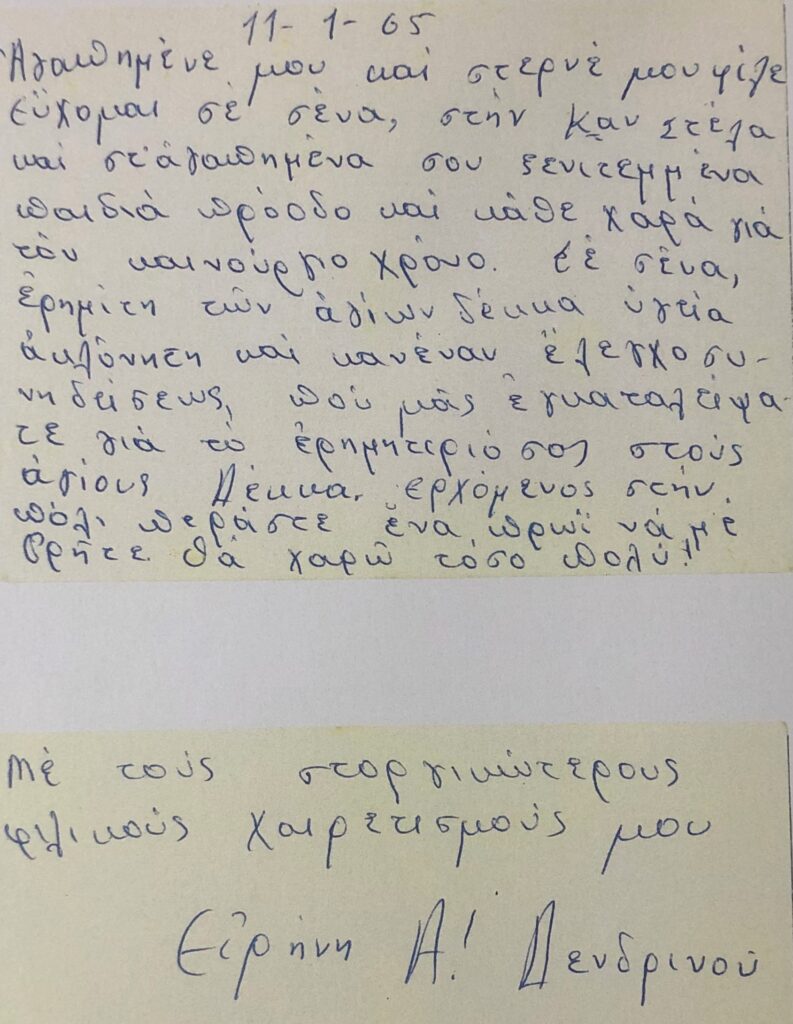 11-1-65
Ἀγαπημένε μου καὶ στερνέ μου φίλε
εὔχομαι σὲ σένα, στὴν Καν Στέλα
καὶ στ' ἀγαπημένα σου ξενιτεμμένα
παιδιὰ πρόοδο καὶ κάθε χαρὰ γιὰ
τὸν καινούργιο χρόνο. Σὲ σένα,
ἐρημίτη τῶν ἁγίων δέκκα ὑγεία
ἀκλόνητη καὶ κανέναν ἔλεγχο συ-
νηδείσεως, ποὺ μᾶς ἐγκαταλείψα-
τε γιὰ τὸ ἐρημητεριό σας στοὺς
ἁγίους Δέκκα. ἐρχόμενος στὴν
πόλι περάστε ἕνα πρωῒ νὰ μὲ
βρῆτε θὰ χαρῶ τόσο πολύ!
Μὲ τοὺς στοργικώτερους
φιλικοὺς χαιρετισμούς μου
Εἰρήνη Α! Δενδρινοῦ